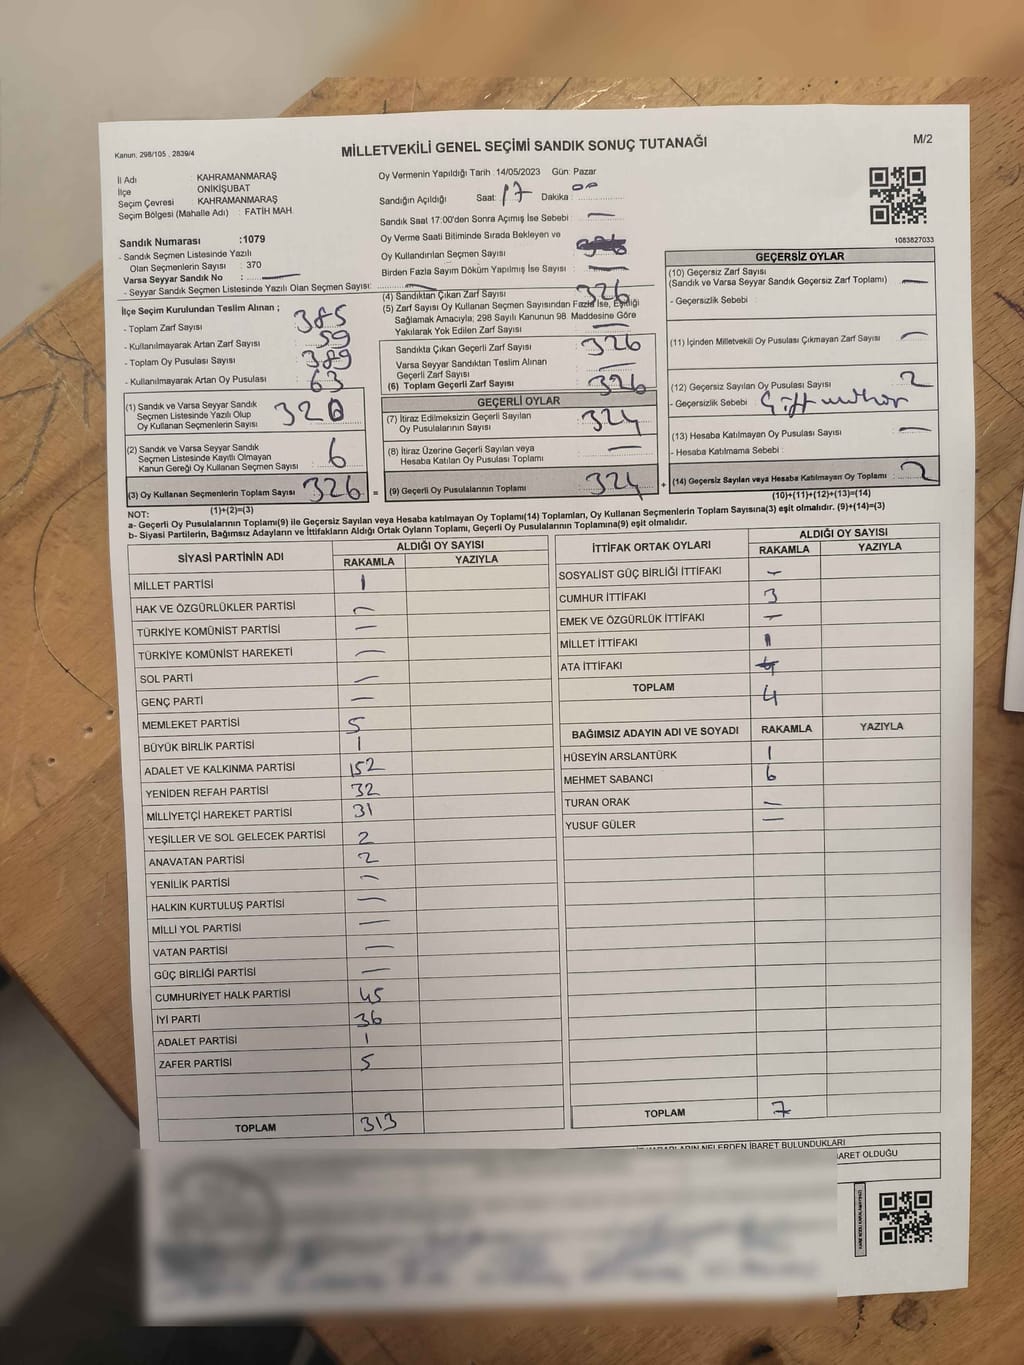 Kanun, 298/105 , 2839/4
MİLLETVEKİLİ GENEL SEÇİMİ SANDIK SONUÇ TUTANAĞI
M/2
İl Adı : KAHRAMANMARAŞ
İlçe : ONİKİŞUBAT
Seçim Çevresi : KAHRAMANMARAŞ
Seçim Bölgesi (Mahalle Adı) : FATİH MAH
Oy Vermenin Yapıldığı Tarih :14/05/2023 Gün: Pazar
Sandığın Açıldığı Saat: 17 Dakika : 00
Sandık Saat 17:00'den Sonra Açılmış İse Sebebi : —
Oy Verme Saati Bitiminde Sırada Bekleyen ve
Oy Kullandırılan Seçmen Sayısı :
Birden Fazla Sayım Döküm Yapılmış İse Sayısı : —
Sandık Numarası :1079
- Sandık Seçmen Listesinde Yazılı
Olan Seçmenlerin Sayısı : 370
Varsa Seyyar Sandık No : —
- Seyyar Sandık Seçmen Listesinde Yazılı Olan Seçmen Sayısı: —
1083827033
İlçe Seçim Kurulundan Teslim Alınan ;
- Toplam Zarf Sayısı : 385
- Kullanılmayarak Artan Zarf Sayısı : 59
- Toplam Oy Pusulası Sayısı : 389
- Kullanılmayarak Artan Oy Pusulası : 63
(1) Sandık ve Varsa Seyyar Sandık
Seçmen Listesinde Yazılı Olup
Oy Kullanan Seçmenlerin Sayısı : 320
(2) Sandık ve Varsa Seyyar Sandık
Seçmen Listesinde Kayıtlı Olmayan
Kanun Gereği Oy Kullanan Seçmen Sayısı : 6
(3) Oy Kullanan Seçmenlerin Toplam Sayısı : 326 =
(1)+(2)=(3)
(4) Sandıktan Çıkan Zarf Sayısı : 326
(5) Zarf Sayısı Oy Kullanan Seçmen Sayısından Fazla İse, Eşitliği
Sağlamak Amacıyla; 298 Sayılı Kanunun 98. Maddesine Göre
Yakılarak Yok Edilen Zarf Sayısı : —
Sandıkta Çıkan Geçerli Zarf Sayısı : 326
Varsa Seyyar Sandıktan Teslim Alınan
Geçerli Zarf Sayısı : —
(6) Toplam Geçerli Zarf Sayısı : 326
GEÇERLİ OYLAR
(7) İtiraz Edilmeksizin Geçerli Sayılan
Oy Pusulalarının Sayısı : 324
(8) İtiraz Üzerine Geçerli Sayılan veya
Hesaba Katılan Oy Pusulası Toplamı : —
(9) Geçerli Oy Pusulalarının Toplamı : 324 +
GEÇERSİZ OYLAR
(10) Geçersiz Zarf Sayısı
(Sandık ve Varsa Seyyar Sandık Geçersiz Zarf Toplamı) : —
- Geçersizlik Sebebi :
(11) İçinden Milletvekili Oy Pusulası Çıkmayan Zarf Sayısı : —
(12) Geçersiz Sayılan Oy Pusulası Sayısı : 2
- Geçersizlik Sebebi : Çift mühür
(13) Hesaba Katılmayan Oy Pusulası Sayısı : —
- Hesaba Katılmama Sebebi :
(14) Geçersiz Sayılan veya Hesaba Katılmayan Oy Toplamı : 2
(10)+(11)+(12)+(13)=(14)
NOT:
a- Geçerli Oy Pusulalarının Toplamı(9) ile Geçersiz Sayılan veya Hesaba katılmayan Oy Toplamı(14) Toplamları, Oy Kullanan Seçmenlerin Toplam Sayısına(3) eşit olmalıdır. (9)+(14)=(3)
b- Siyasi Partilerin, Bağımsız Adayların ve İttifakların Aldığı Oyların Toplamı, Geçerli Oy Pusulalarının Toplamına(9) eşit olmalıdır.
SİYASİ PARTİNİN ADI ALDIĞI OY SAYISI
RAKAMLA YAZIYLA
MİLLET PARTİSİ 1
HAK VE ÖZGÜRLÜKLER PARTİSİ —
TÜRKİYE KOMÜNİST PARTİSİ —
TÜRKİYE KOMÜNİST HAREKETİ —
SOL PARTİ —
GENÇ PARTİ —
MEMLEKET PARTİSİ 5
BÜYÜK BİRLİK PARTİSİ 1
ADALET VE KALKINMA PARTİSİ 152
YENİDEN REFAH PARTİSİ 32
MİLLİYETÇİ HAREKET PARTİSİ 31
YEŞİLLER VE SOL GELECEK PARTİSİ 2
ANAVATAN PARTİSİ 2
YENİLİK PARTİSİ —
HALKIN KURTULUŞ PARTİSİ —
MİLLİ YOL PARTİSİ —
VATAN PARTİSİ —
GÜÇ BİRLİĞİ PARTİSİ —
CUMHURİYET HALK PARTİSİ 45
İYİ PARTİ 36
ADALET PARTİSİ 1
ZAFER PARTİSİ 5
TOPLAM 313
İTTİFAK ORTAK OYLARI ALDIĞI OY SAYISI
RAKAMLA YAZIYLA
SOSYALİST GÜÇ BİRLİĞİ İTTİFAKI —
CUMHUR İTTİFAKI 3
EMEK VE ÖZGÜRLÜK İTTİFAKI —
MİLLET İTTİFAKI 1
ATA İTTİFAKI
TOPLAM 4
BAĞIMSIZ ADAYIN ADI VE SOYADI RAKAMLA YAZIYLA
HÜSEYİN ARSLANTÜRK 1
MEHMET SABANCI 6
TURAN ORAK —
YUSUF GÜLER —
TOPLAM 7
NELERDEN İBARET BULUNDUKLARI
OLDUĞU